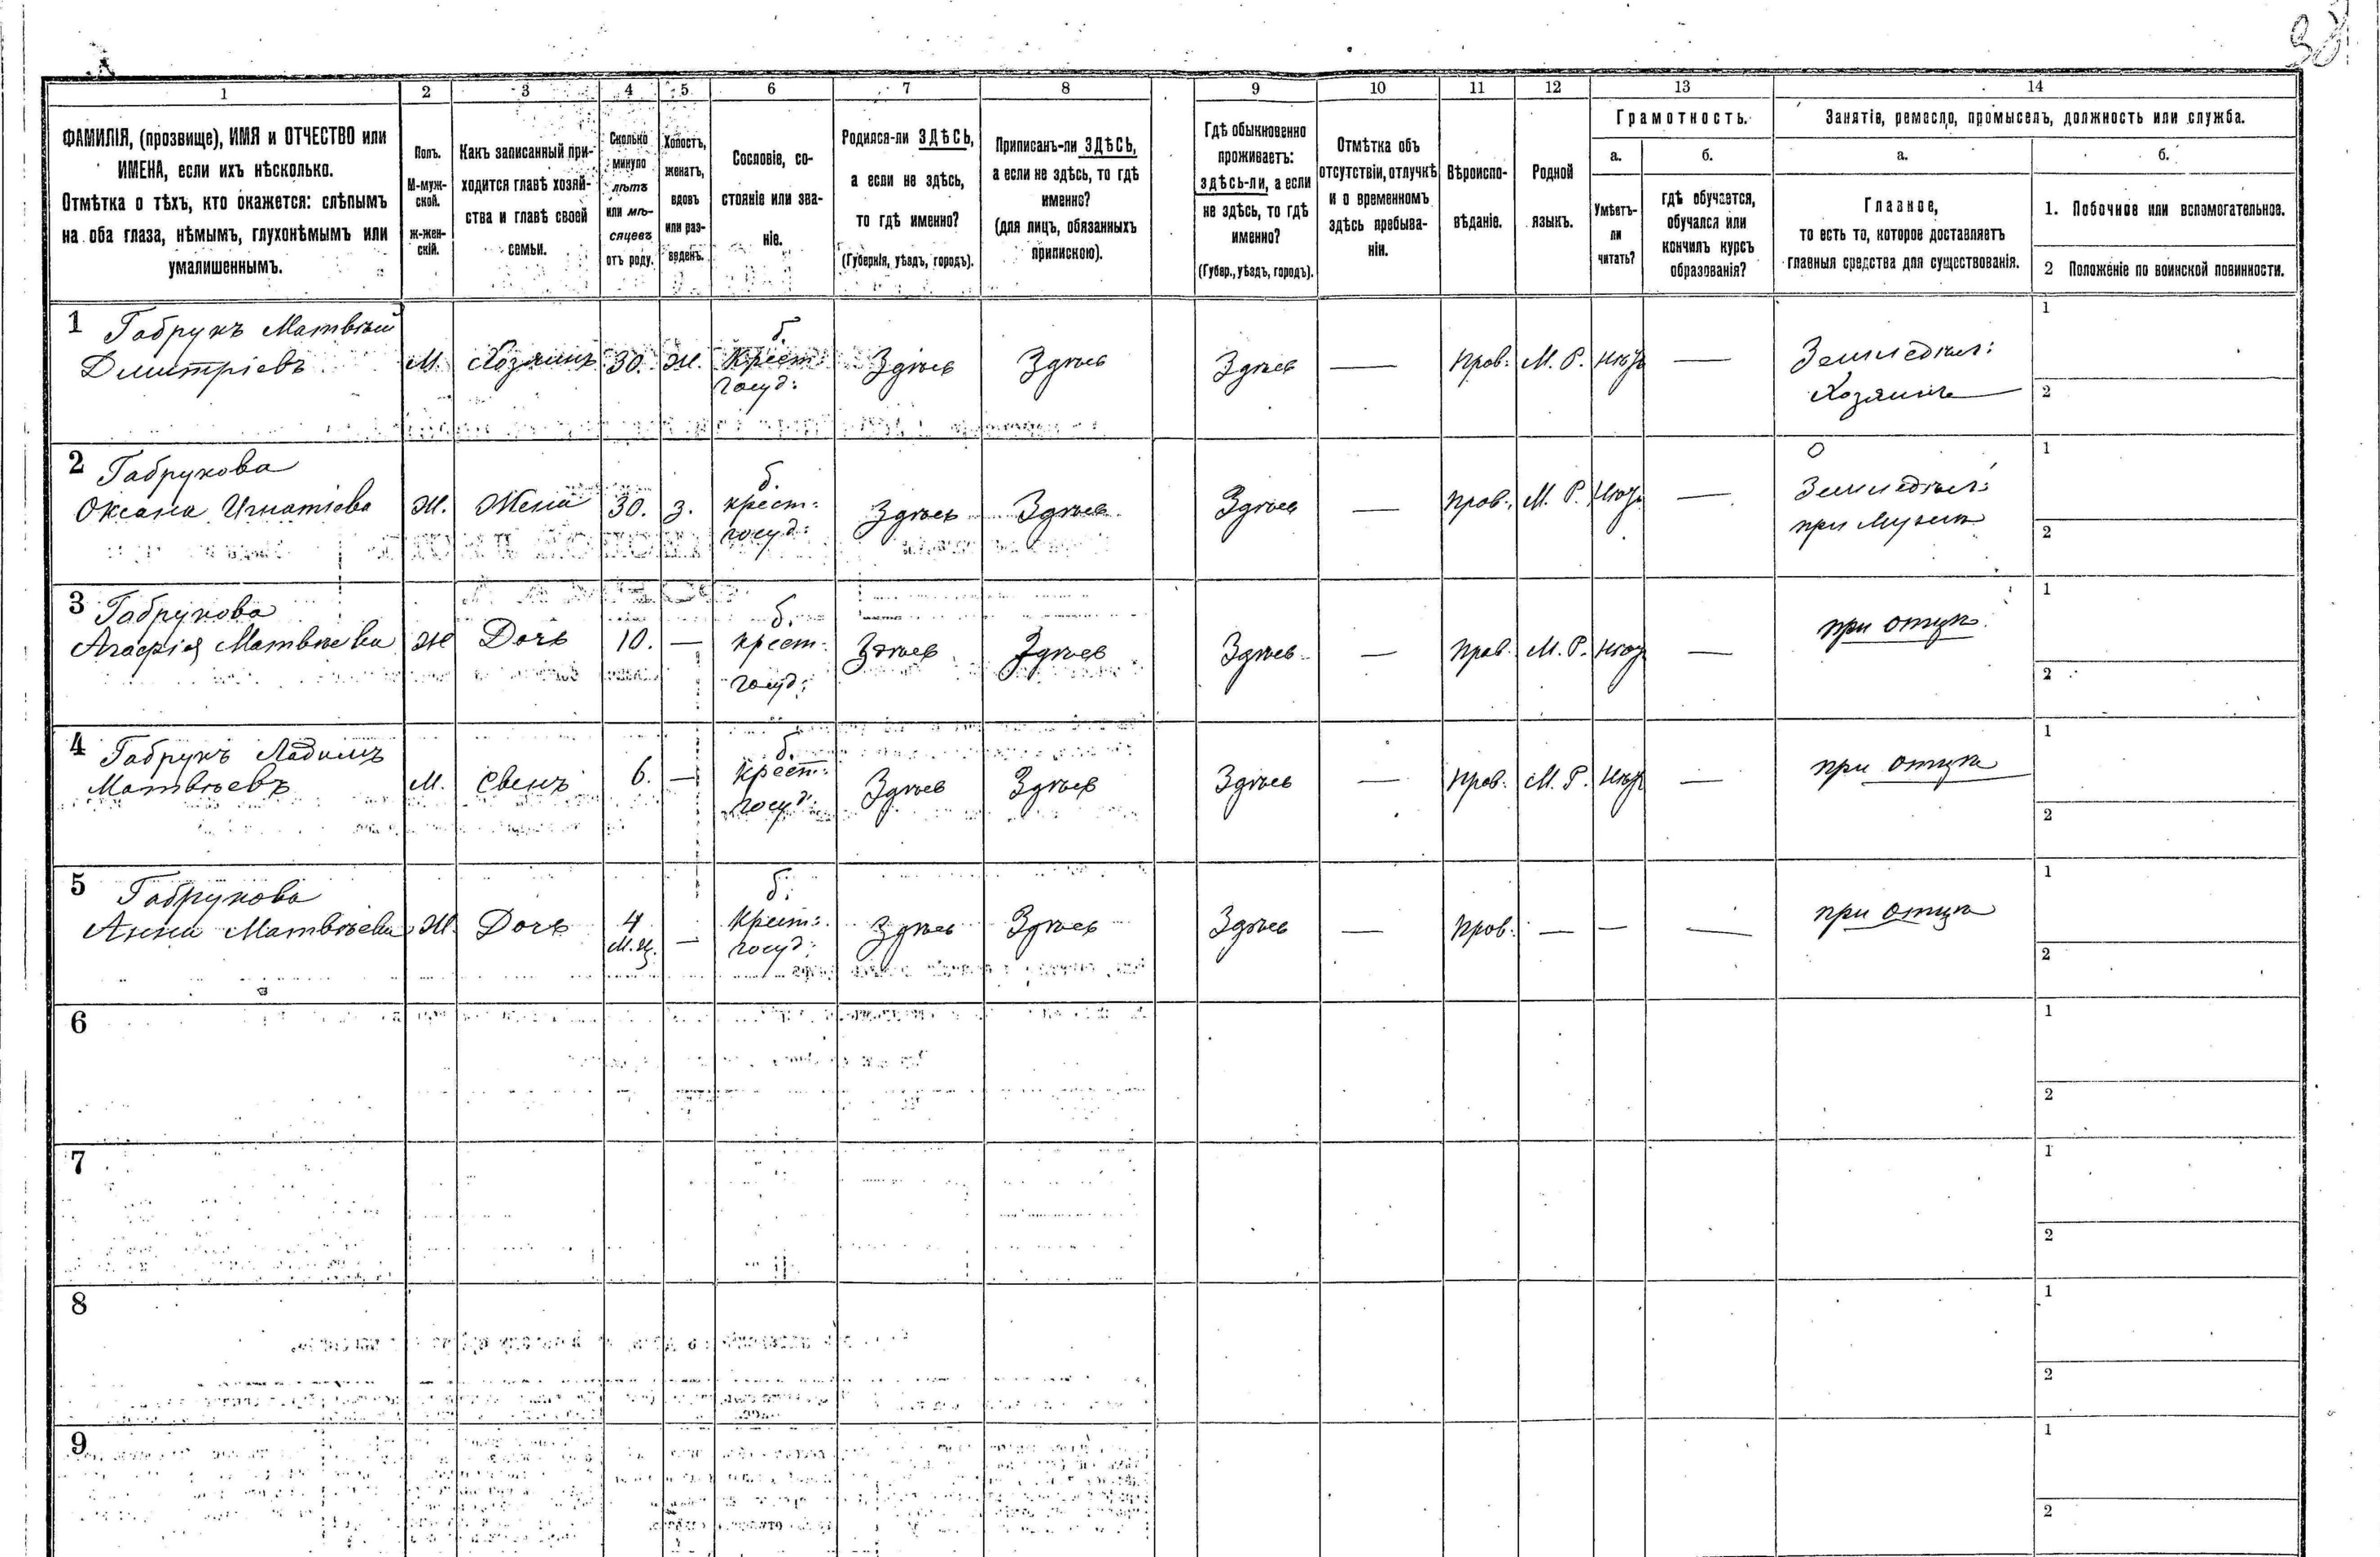 38
1 2 3 4 5 6 7 8 9 10 11 12 13 14
ФАМИЛІЯ, (прозвище), ИМЯ и ОТЧЕСТВО или
ИМЕНА, если ихъ нѣсколько.
Отмѣтка о тѣхъ, кто окажется: слѣпымъ
на оба глаза, нѣмымъ, глухонѣмымъ или
умалишеннымъ.
Полъ.
М-муж-
ской.
Ж-жен-
скій.
Какъ записанный при-
ходится главѣ хозяй-
ства и главѣ своей
семьи.
Сколько
минуло
лѣтъ
или мѣ-
сяцевъ
отъ роду.
Холостъ,
женатъ,
вдовъ
или раз-
веденъ.
Сословіе, со-
стояніе или зва-
ніе.
Родился-ли ЗДѢСЬ,
а если не здѣсь,
то гдѣ именно?
(Губернія, уѣздъ, городъ).
Приписанъ-ли ЗДѢСЬ,
а если не здѣсь, то гдѣ
именно?
(для лицъ, обязанныхъ
припискою).
Гдѣ обыкновенно
проживаетъ:
здѣсь-ли, а если
не здѣсь, то гдѣ
именно?
(Губер., уѣздъ, городъ).
Отмѣтка объ
отсутствіи, отлучкѣ
и о временномъ
здѣсь пребыва-
ніи.
Вѣроиспо-
вѣданіе.
Родной
языкъ.
Грамотность.
а.
Умѣетъ-
ли
читать?
б.
гдѣ обучается,
обучался или
кончилъ курсъ
образованія?
Занятіе, ремесло, промыселъ, должность или служба.
а.
Главное,
то есть то, которое доставляетъ
главныя средства для существованія.
б.
1. Побочное или вспомогательное.
2 Положеніе по воинской повинности.
1 Габрукъ Матвѣй
Дмитріевъ
М.
Хозяинъ
30.
Ж.
б.
Крест:
госуд:
Здѣсь
Здѣсь
Здѣсь
—
Прав:
М. Р.
Нѣтъ
—
Земледѣл:
Хозяинъ
1
2
2 Габрукова
Оксана Игнатіева
Ж.
Жена
30.
З.
б.
крест:
госуд:
Здѣсь
Здѣсь
Здѣсь
—
Прав:
М. Р.
Нѣтъ
—
Земледѣл:
при Мужѣ
1
2
3 Габрукова
Агафія Матвѣева
Ж
Дочь
10.
—
б.
крест:
госуд:
Здѣсь
Здѣсь
Здѣсь
—
Прав:
М. Р.
Нѣтъ
—
при отцѣ
1
2
4 Габрукъ
Матвѣевъ
М.
Свенъ
6.
—
б.
Крест:
госуд:
Здѣсь
Здѣсь
Здѣсь
—
Прав:
М. Р.
Нѣтъ
—
при отцѣ
1
2
5 Габрукова
Анна Матвѣева
Ж.
Дочь
4
М.ц.
—
б.
Крест:
госуд:
Здѣсь
Здѣсь
Здѣсь
—
Прав:
—
—
—
при отцѣ
1
2
6
1
2
7
1
2
8
1
2
9
1
2